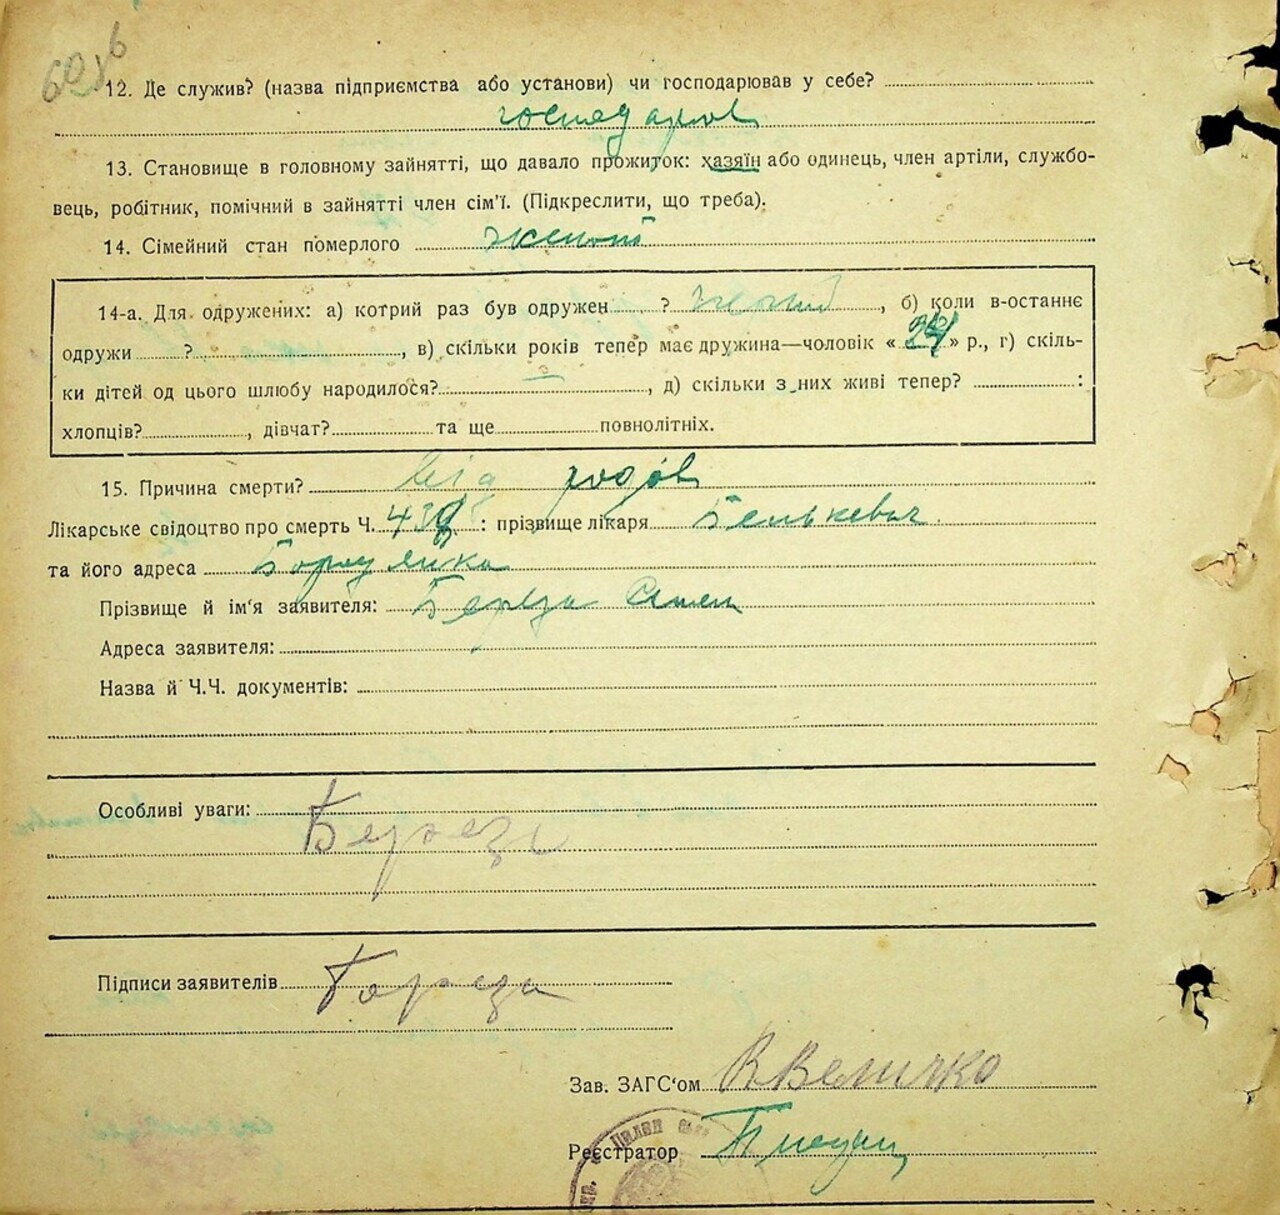 12. Де служив? (назва підприємства або установи) чи господарював у себе?
господарюв
13. Становище в головному зайнятті, що давало прожиток: хазяїн або одинець, член артіли, службо-
вець, робітник, помічний в зайнятті член сім'ї. (Підкреслити, що треба).
14. Сімейний стан померлого
14-а. Для одружених: а) котрий раз був одружен ? , б) коли в-останнє
одружи ? , в) скільки років тепер має дружина—чоловік « » р., г) скіль-
ки дітей од цього шлюбу народилося? — , д) скільки з них живі тепер? :
хлопців? , дівчат? та ще повнолітніх.
15. Причина смерти? від родов
Лікарське свідоцтво про смерть Ч. : прізвище лікаря Белькевич
та його адреса Бородянка
Прізвище й ім'я заявителя: Береза
Адреса заявителя:
Назва й Ч.Ч. документів:
Особливі уваги:
Береза
Підписи заявителів Береза
Зав. ЗАГС'ом ВВеличко
Реєстратор